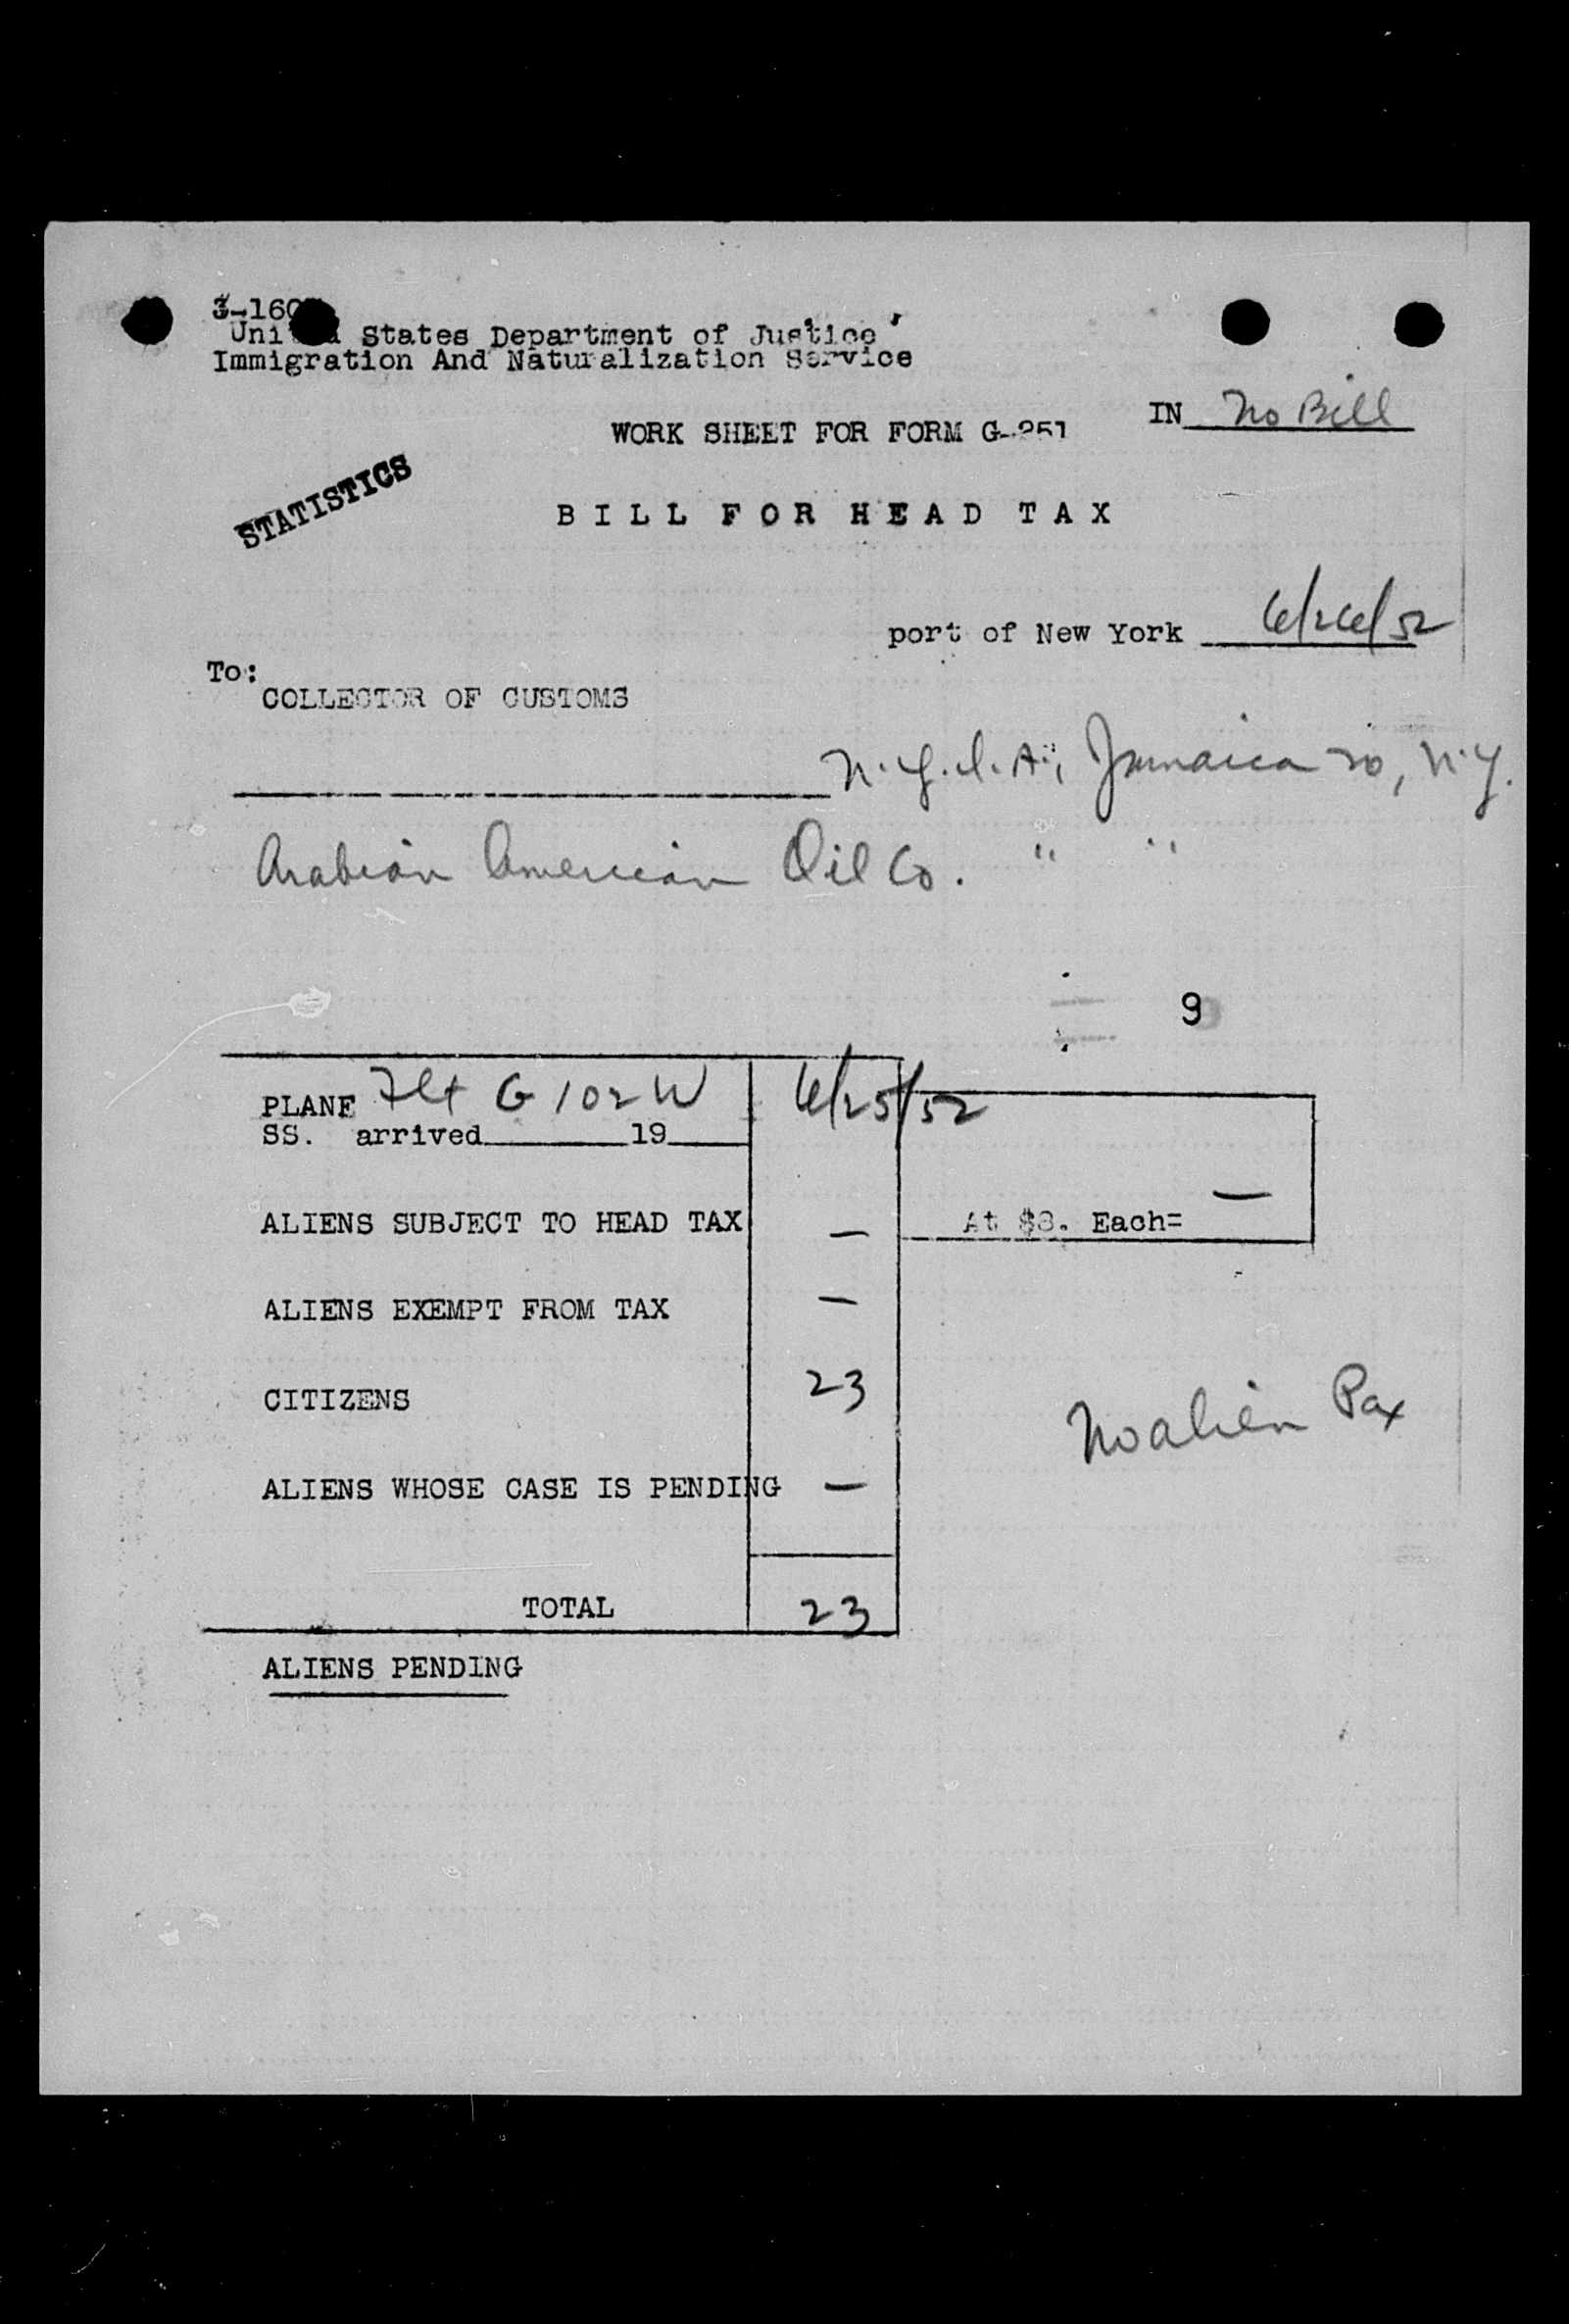 3-160
United States Department of Justice
Immigration And Naturalization Service
IN No Bill
WORK SHEET FOR FORM G-251
STATISTICS
BILL FOR HEAD TAX
port of New York 6/26/52
To:
COLLECTOR OF CUSTOMS
N.Y.I.A., Jamaica 20, N.Y.
Arabian American Oil Co. " "
9
PLANE Flt G 102 W 6/25/52
SS. arrived 19
ALIENS SUBJECT TO HEAD TAX — At $8. Each= —
ALIENS EXEMPT FROM TAX —
CITIZENS 23
No alien Pax
ALIENS WHOSE CASE IS PENDING —
TOTAL 23
ALIENS PENDING